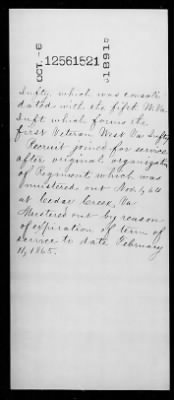 OCT. -6
12561521
1891
Infty, which was consoli
dated with the fifth W. Va.
Inft which forms the
first Veteran West Va Infty
Recruit joined for service
after original organizatn
of Regiment which was
mustered out Nov. 9, 64
at Cedar Creek, Va
Mustered out by reason
of expiration of term of
service to date February
11, 1865.